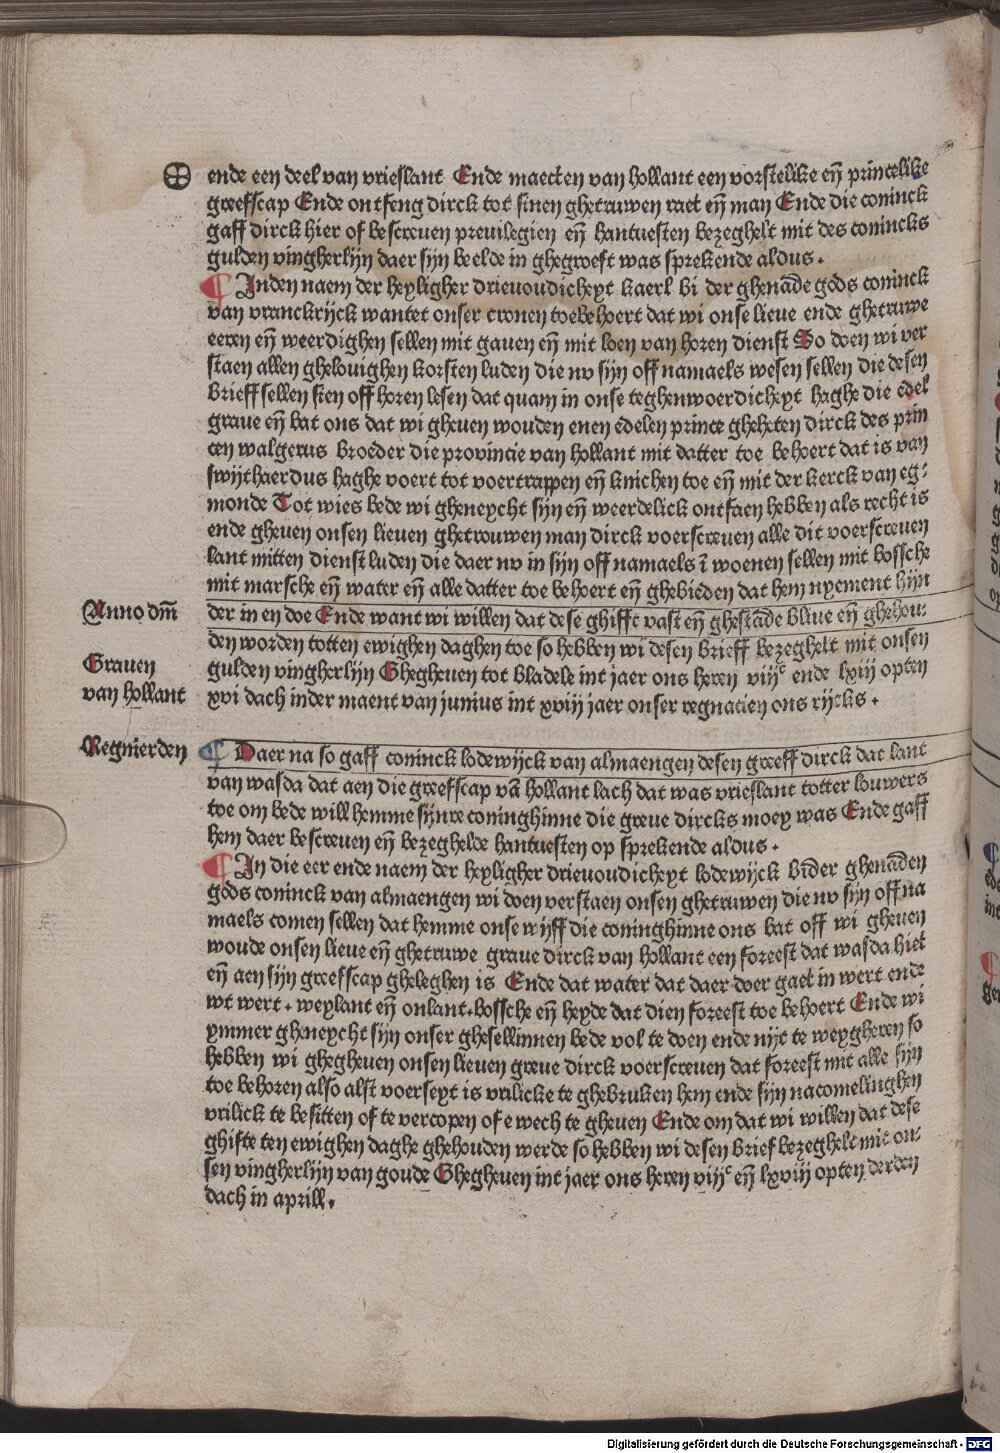 ende een deel van vrieslant Ende maecten van hollant een vorstelike en̄ princelike
greefscap Ende ontfeng dirck tot sinen ghetruwen raet en̄ man Ende die coninck
gaff dirck hier of bescreuen preuilegien en̄ hantuesten bezeghelt mit des conincks
gulden vingherlijn daer sijn beelde in ghegroeft was sprekende aldus.
¶ Inden naem der heyligher drieuoudicheyt kaerl bi der ghenāde gods coninck
van vranckrijck wantet onser cronen toebehoert dat wi onse lieue ende ghetruwe
eeren en̄ weerdighen sellen mit gauen en̄ mit loen van horen dienst So doen wi ver
staen allen ghelouighen korsten luden die nv sijn off namaels wesen sellen die desen
brieff sellen sien off horen lesen dat quam in onse teghenwoerdicheyt haghe die edel
graue en̄ bat ons dat wi gheuen wouden enen edelen prince gheheten dirck des prin
cen walgerus broeder die prouincie van hollant mit datter toe behoert dat is van
swijthaerdus haghe voert tot voertrappen en̄ knichen toe en̄ mit der kerck van eg-
monde Tot wies bede wi gheneycht sijn en̄ weerdelick ontfaen hebben als recht is
ende gheuen onsen lieuen ghetrouwen man dirck voerscreuen alle dit voerscreuen
lant mitten dienst luden die daer nv in sijn off namaels ī woenen sellen mit bossche
mit marsche en̄ water en̄ alle datter toe behoert en̄ ghebieden dat hem nyement hijn
Anno dm̄
der in en doe Ende want wi willen dat dese ghiffte vast en̄ ghestāde bliue en̄ ghehou-
den worden totten ewighen daghen toe so hebben wi desen brieff bezeghelt mit onsen
Grauen
van hollant
gulden vingherlijn Ghegheuen tot bladele int jaer ons heren viijᶜ ende lxiij opten
xvi dach inder maent van junius int xviij jaer onser regnatien ons rijcks.
Regnierden
¶ Daer na so gaff coninck lodewijck van almaengen desen greeff dirck dat lant
van wasda dat aen die greefscap vā hollant lach dat was vrieslant totter louwers
toe om bede will hemme sijnre coninghinne die greue dircks moey was Ende gaff
hem daer bescreuen en̄ bezeghelde hantuesten op sprekende aldus.
¶ In die eer ende naem der heyligher drieuoudicheyt lodewijck bider ghenāden
gods coninck van almaengen wi doen verstaen onsen ghetruwen die nv sijn off na
maels comen sellen dat hemme onse wijff die coninghinne ons bat off wi gheuen
woude onsen lieue en̄ ghetruwe graue dirck van hollant een foreest dat wasda hiet
en̄ aen sijn greefscap gheleghen is Ende dat water dat daer doer gaet in wert ende
wt wert. weylant en̄ onlant. bossche en̄ heyde dat dien foreest toe behoert Ende wi
ymmer gheneycht sijn onser ghesellinnen bede vol te doen ende nijt te weygheren so
hebben wi ghegheuen onsen lieuen greue dirck voerscreuen dat foreest mit alle sijn
toe behoren also alst voerseyt is vrilicke te ghebruken hem ende sijn nacomelinghen
vrilick te besitten of te vercopen of ewech te gheuen Ende om dat wi willen dat dese
ghifte ten ewighen daghe ghehouden werde so hebben wi desen brief bezeghelt mit on-
sen vingherlijn van goude Ghegheuen int jaer ons heren viijᶜ en̄ lxviij opten derden
dach in aprill.
Digitalisierung gefördert durch die Deutsche Forschungsgemeinschaft - DFG